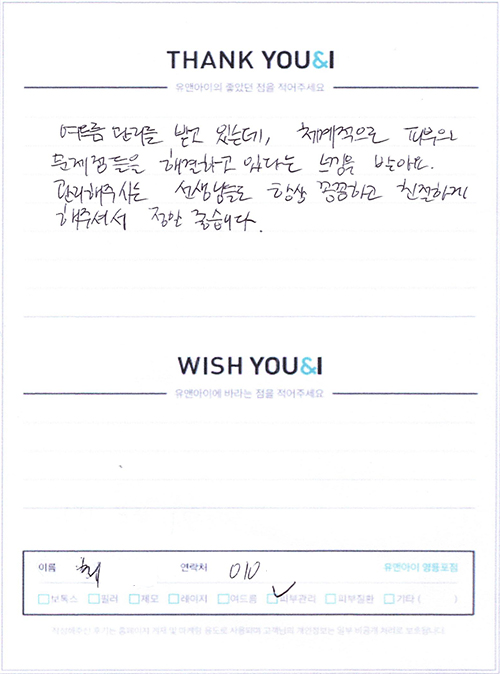 THANK YOU&I
유앤아이의 좋았던 점을 적어주세요
여드름 관리를 받고 있는데, 체계적으로 피부의
문제점들을 해결하고 있다는 느낌을 받아요.
관리해주시는 선생님들도 항상 꼼꼼하고 친절하게
해주셔서 정말 좋습니다.
WISH YOU&I
유앤아이에 바라는 점을 적어주세요
이름 최 연락처 010 유앤아이 영등포점
보톡스 필러 제모 레이저 여드름 피부관리 피부질환 기타 ( )
작성해주신 후기는 홈페이지 게재 및 마케팅 용도로 사용되며 고객님의 개인정보는 일부 비공개 처리로 보호됩니다.